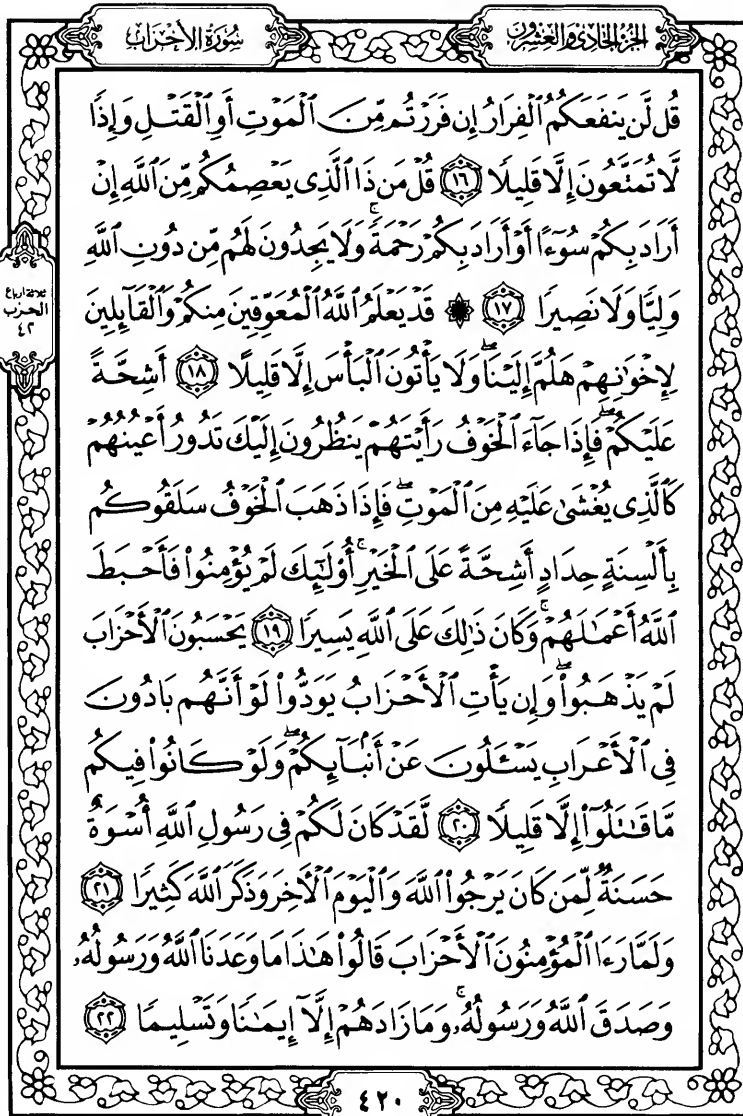 الجزء الحادي والعشرون
سورة الأحزاب
قُل لَّن يَنفَعَكُمُ ٱلْفِرَارُ إِن فَرَرْتُم مِّنَ ٱلْمَوْتِ أَوِ ٱلْقَتْلِ وَإِذًا
لَّا تُمَتَّعُونَ إِلَّا قَلِيلًا ١٦ قُلْ مَن ذَا ٱلَّذِى يَعْصِمُكُم مِّنَ ٱللَّهِ إِنْ
أَرَادَ بِكُمْ سُوٓءًا أَوْ أَرَادَ بِكُمْ رَحْمَةً ۚ وَلَا يَجِدُونَ لَهُم مِّن دُونِ ٱللَّهِ
وَلِيًّا وَلَا نَصِيرًا ١٧ ۞ قَدْ يَعْلَمُ ٱللَّهُ ٱلْمُعَوِّقِينَ مِنكُمْ وَٱلْقَآئِلِينَ
لِإِخْوَٰنِهِمْ هَلُمَّ إِلَيْنَا ۖ وَلَا يَأْتُونَ ٱلْبَأْسَ إِلَّا قَلِيلًا ١٨ أَشِحَّةً
عَلَيْكُمْ ۖ فَإِذَا جَآءَ ٱلْخَوْفُ رَأَيْتَهُمْ يَنظُرُونَ إِلَيْكَ تَدُورُ أَعْيُنُهُمْ
كَٱلَّذِى يُغْشَىٰ عَلَيْهِ مِنَ ٱلْمَوْتِ ۖ فَإِذَا ذَهَبَ ٱلْخَوْفُ سَلَقُوكُم
بِأَلْسِنَةٍ حِدَادٍ أَشِحَّةً عَلَى ٱلْخَيْرِ ۚ أُو۟لَٰٓئِكَ لَمْ يُؤْمِنُوا۟ فَأَحْبَطَ
ٱللَّهُ أَعْمَٰلَهُمْ ۚ وَكَانَ ذَٰلِكَ عَلَى ٱللَّهِ يَسِيرًا ١٩ يَحْسَبُونَ ٱلْأَحْزَابَ
لَمْ يَذْهَبُوا۟ ۖ وَإِن يَأْتِ ٱلْأَحْزَابُ يَوَدُّوا۟ لَوْ أَنَّهُم بَادُونَ
فِى ٱلْأَعْرَابِ يَسْـَٔلُونَ عَنْ أَنۢبَآئِكُمْ ۖ وَلَوْ كَانُوا۟ فِيكُم
مَّا قَٰتَلُوٓا۟ إِلَّا قَلِيلًا ٢٠ لَّقَدْ كَانَ لَكُمْ فِى رَسُولِ ٱللَّهِ أُسْوَةٌ
حَسَنَةٌ لِّمَن كَانَ يَرْجُوا۟ ٱللَّهَ وَٱلْيَوْمَ ٱلْـَٔاخِرَ وَذَكَرَ ٱللَّهَ كَثِيرًا ٢١
وَلَمَّا رَءَا ٱلْمُؤْمِنُونَ ٱلْأَحْزَابَ قَالُوا۟ هَٰذَا مَا وَعَدَنَا ٱللَّهُ وَرَسُولُهُۥ
وَصَدَقَ ٱللَّهُ وَرَسُولُهُۥ ۚ وَمَا زَادَهُمْ إِلَّآ إِيمَٰنًا وَتَسْلِيمًا ٢٢
ثلاثة أرباع
الحزب
٤٢
٤٢٠